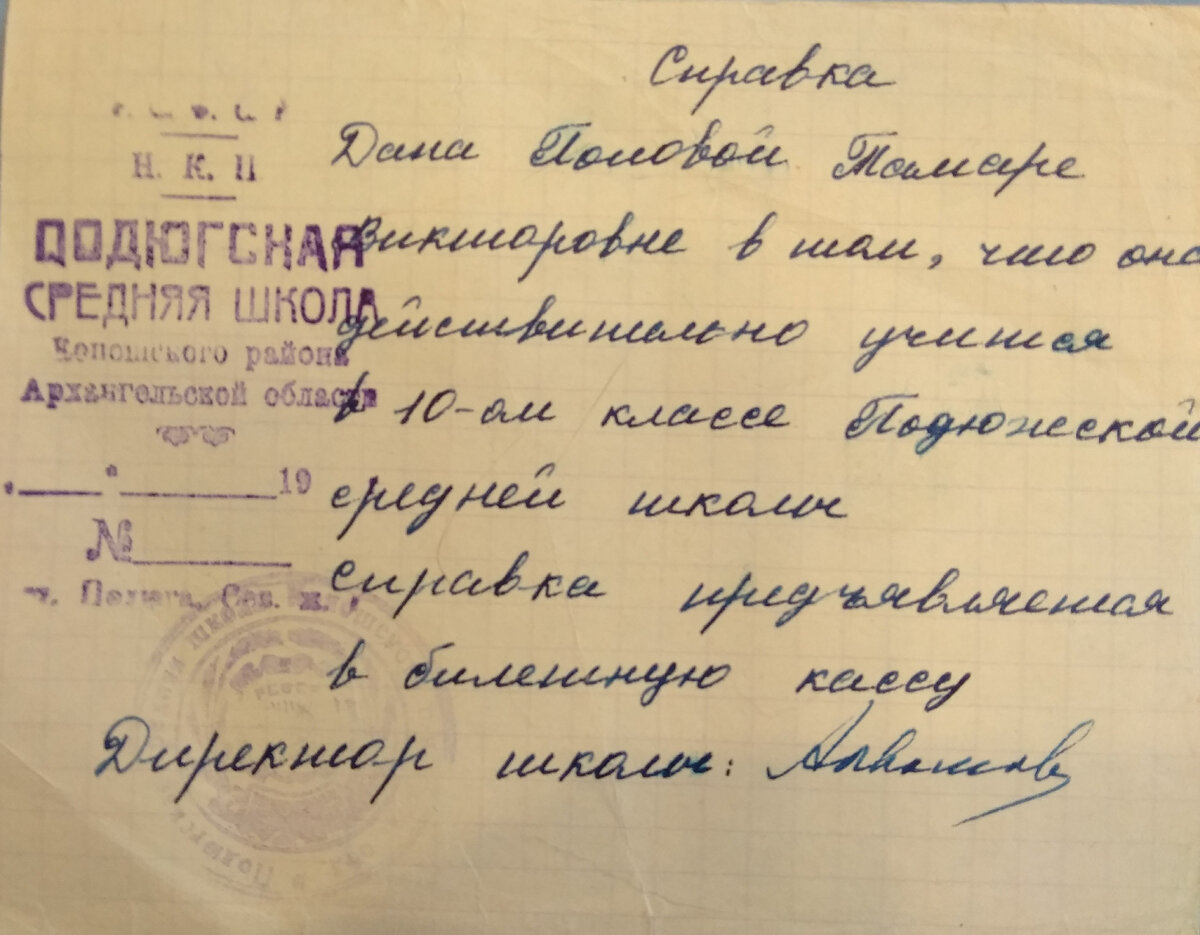 Справка
Р. С. Ф. С. Р
Н. К. П
ПОДЮГСКАЯ
СРЕДНЯЯ ШКОЛА
Коношского района
Архангельской области
19
№
Дана Поповой Тамаре
Викторовне в том, что она
действительно учится
в 10-ом классе Подюжской
средней школы
справка предъявляется
в билетную кассу
Директор школы: